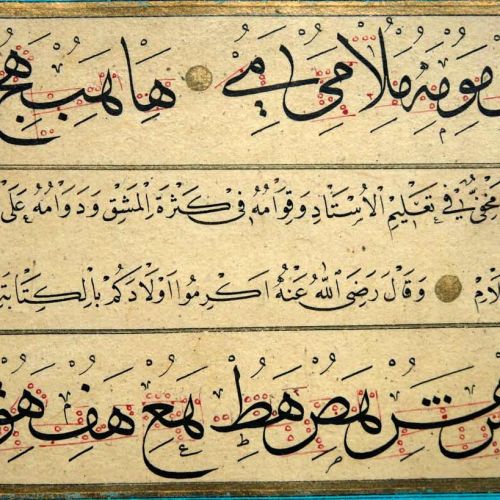 مومه ملا مى مي ها هب هج
مخفي في تعليم الاستاد وقوامه في كثرة المشق ودوامه على
وقال رضي الله عنه اكرموا اولادكم بالكتابة
هر هص هط هع هف هق